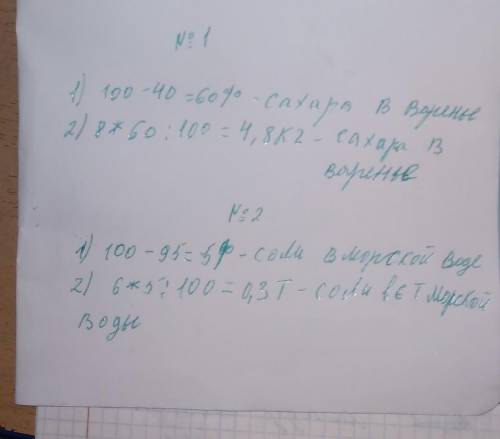 №1
1) 100-40=60% - сахара в варенье
2) 8*60:100=4,8кг - сахара в
варенье
№2
1) 100-95=5% - соли в морской воде
2) 6*5:100=0,3т - соли в 6т морской
воды